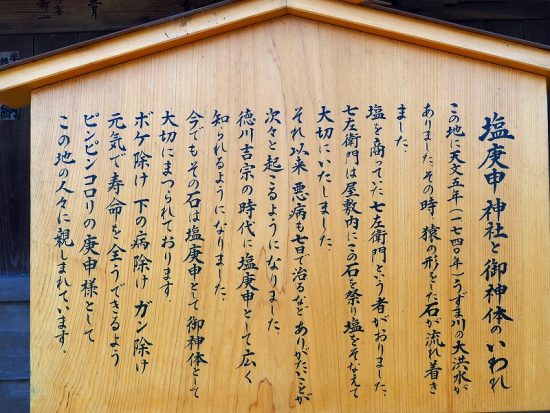 塩庚申神社と御神体のいわれ
この地に天文五年(一七四〇年)うずま川の大洪水が
ありました。その時、猿の形をした石が流れ着き
ました。
塩を商っていた七左衛門という者がおりました。
七左衛門は屋敷内にこの石を祭り塩をそなえて
大切にいたしました。
それ以来、悪病も七日で治るなど、ありがたいことが
次々と起こるようになりました。
徳川吉宗の時代に塩庚申として広く
知られるようになりました。
今でもその石は塩庚申として御神体として
大切にまつられております
ボケ除け 下の病除け ガン除け
元気で寿命を全うできるよう
ピンピンコロリの庚申様として
この地の人々に親しまれています。